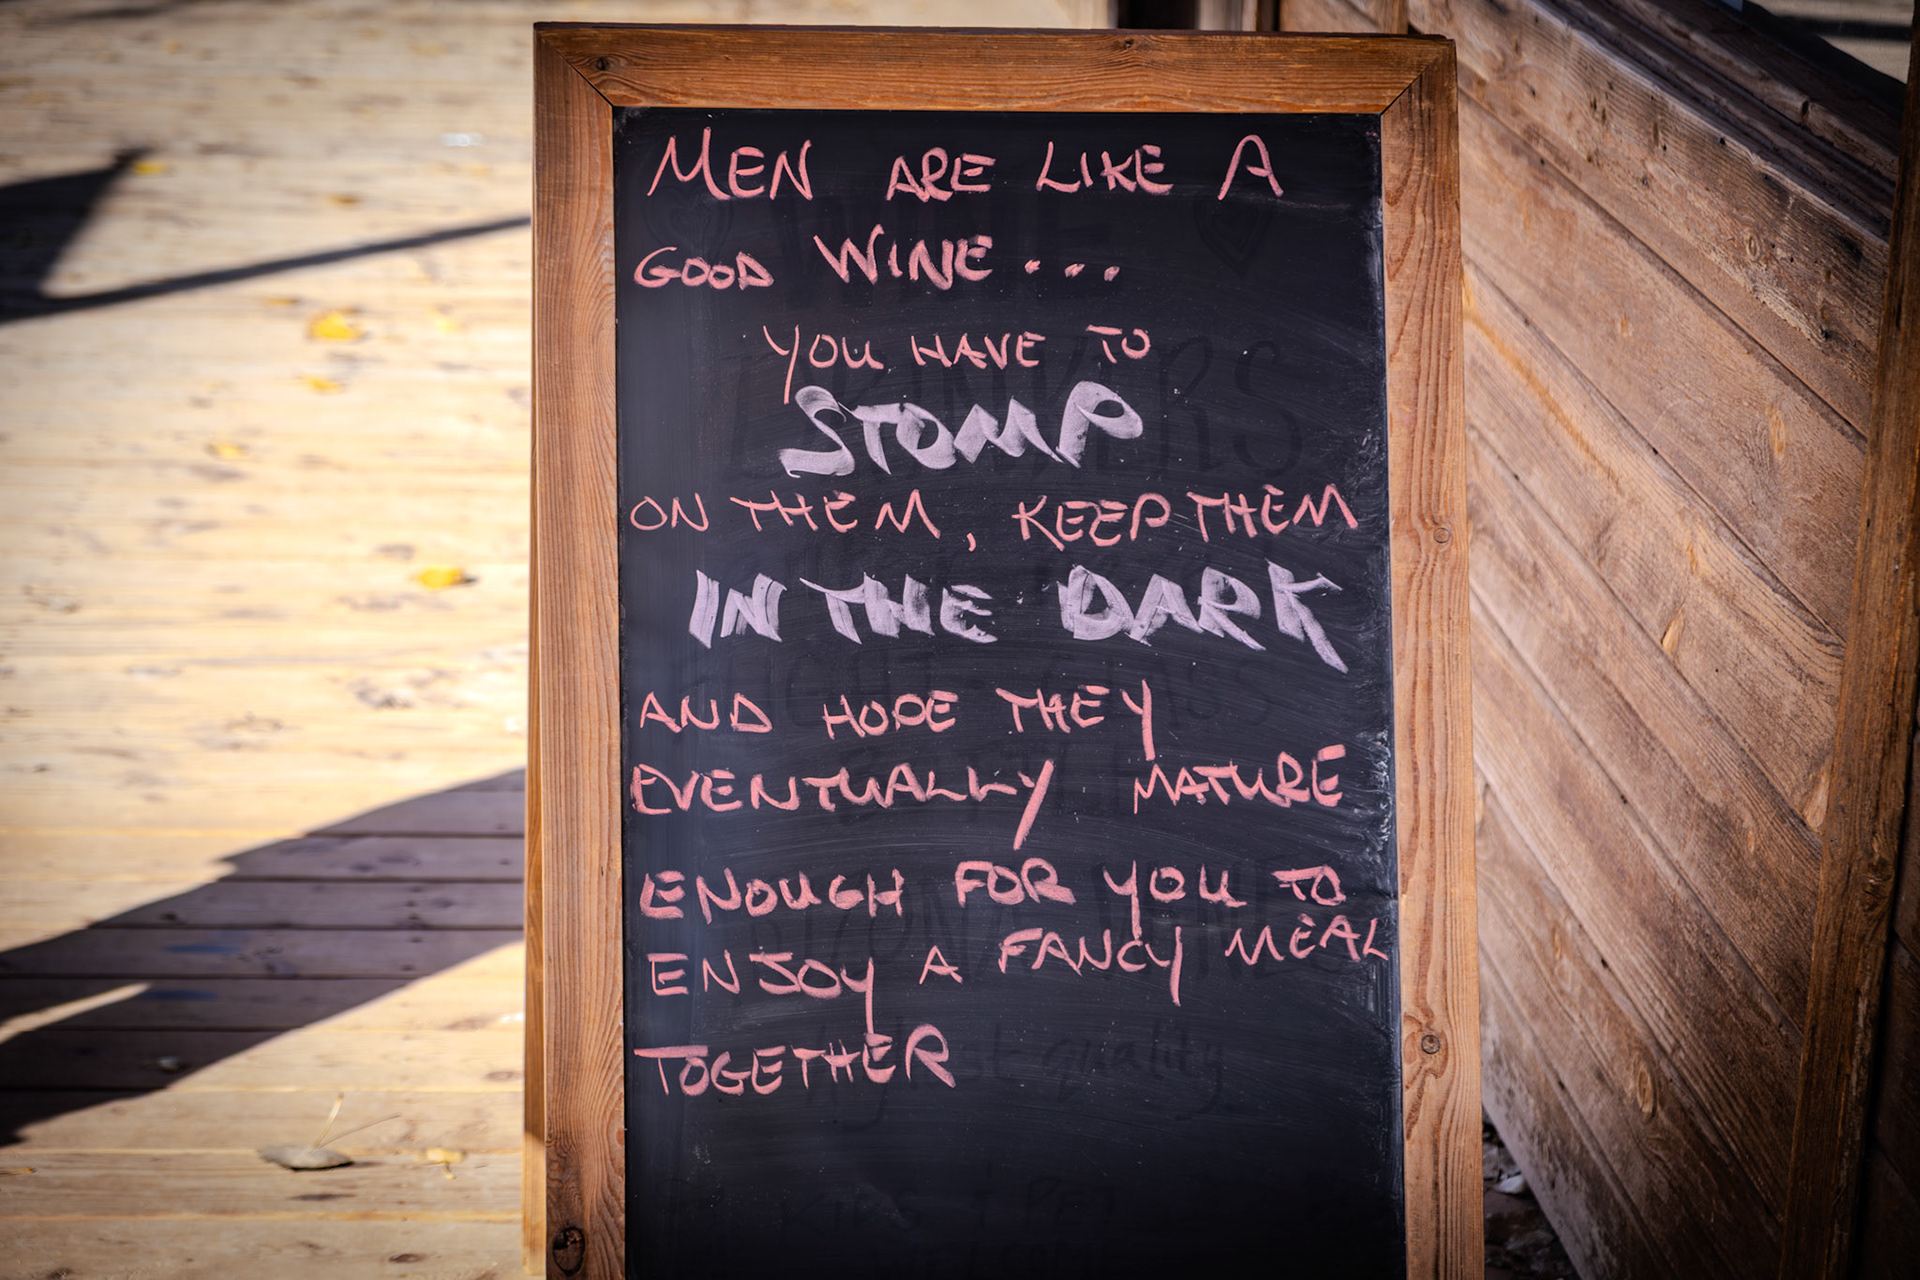 MEN ARE LIKE A
GOOD WINE...
YOU HAVE TO
STOMP
ON THEM, KEEP THEM
IN THE DARK
AND HOPE THEY
EVENTUALLY MATURE
ENOUGH FOR YOU TO
ENJOY A FANCY MEAL
TOGETHER